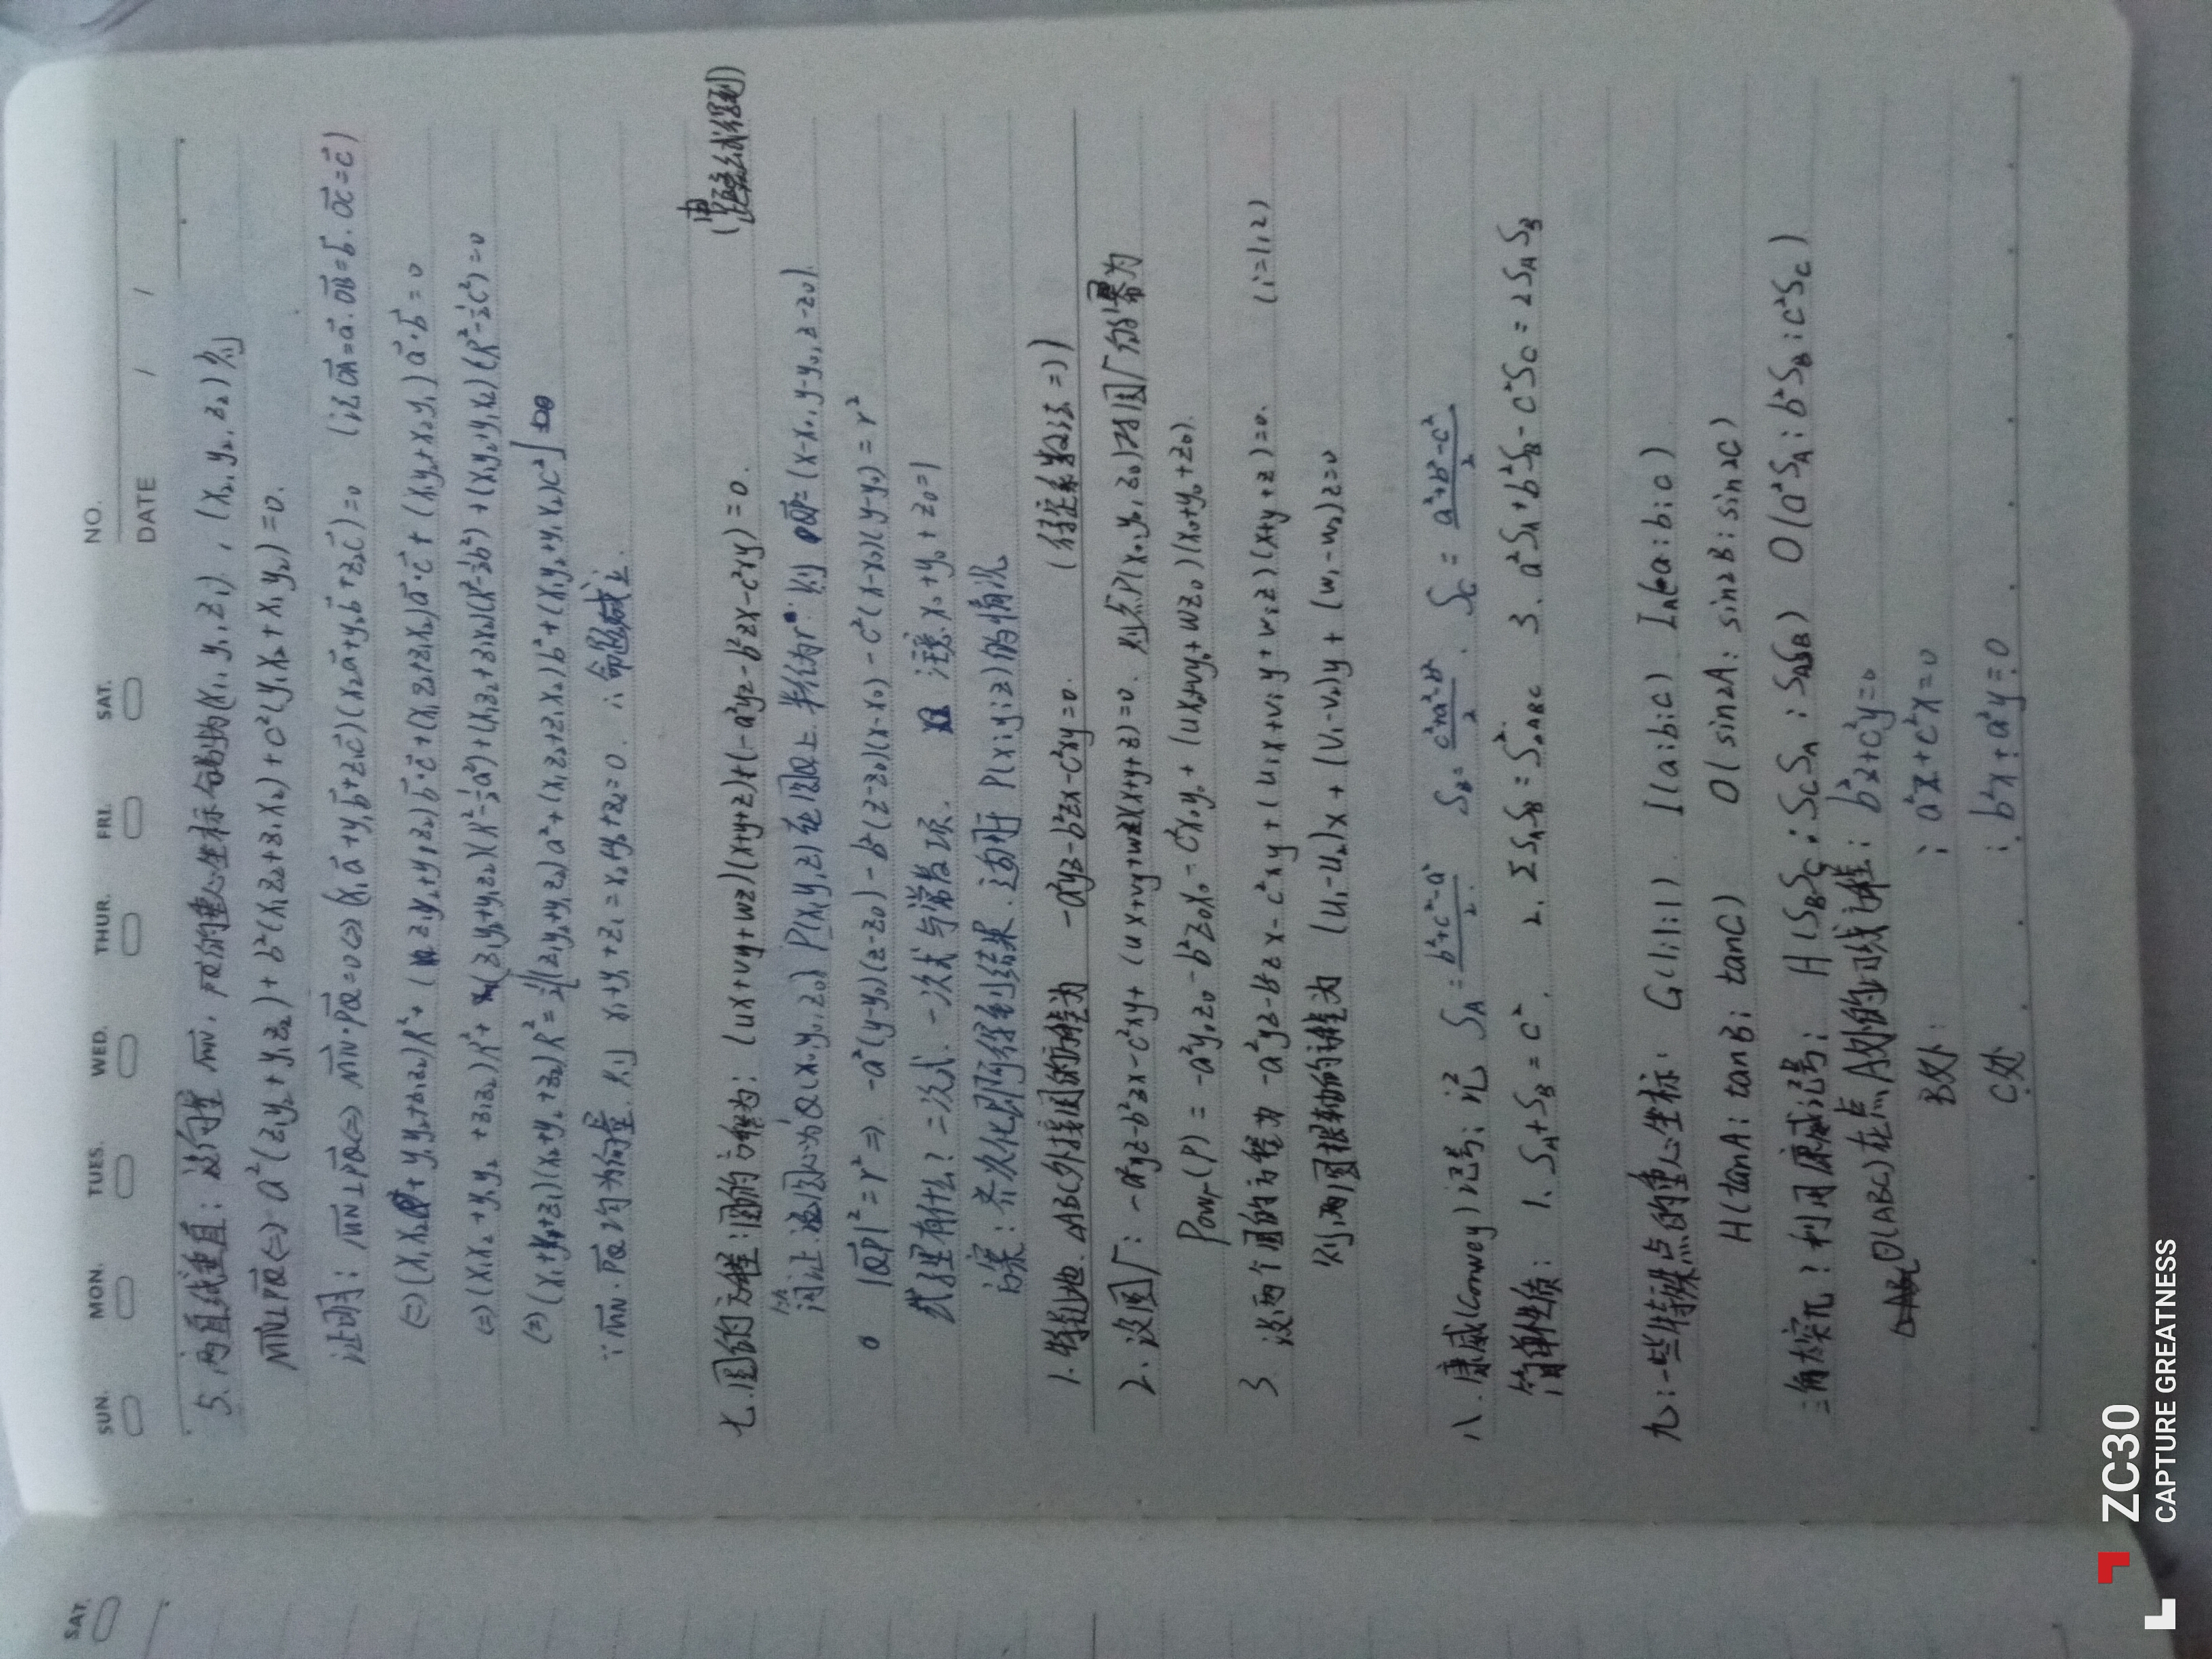 NO.
DATE / /
SUN. MON. TUES. WED. THUR. FRI. SAT.
5. 两直线垂直：设向量 MN, PQ的重心坐标分别为(x₁, y₁, z₁), (x₂, y₂, z₂) 则
MN⊥PQ⇔ a²(z₁y₂+y₁z₂)+b²(x₁z₂+z₁x₂)+c²(y₁x₂+x₁y₂)=0.
证明: MN⊥PQ⇔ MN·PQ=0⇔(x₁a+y₁b+z₁c)(x₂a+y₂b+z₂c)=0 (记OA=a. OB=b. OC=c)
⇔(x₁x₂+y₁y₂+z₁z₂)R²+(z₁y₂+y₁z₂)b·c+(x₁z₂+z₁x₂)a·c+(x₁y₂+x₂y₁)a·b=0
⇔(x₁x₂+y₁y₂+z₁z₂)R²+(z₁y₂+y₁z₂)(R²-½a²)+(x₁z₂+z₁x₂)(R²-½b²)+(x₁y₂+y₁x₂)(R²-½c²)=0
⇔(x₁+y₁+z₁)(x₂+y₂+z₂)R²=½[(z₁y₂+y₁z₂)a²+(x₁z₂+z₁x₂)b²+(x₁y₂+y₁x₂)c²]
∵MN·PQ均为向量. 则 x₁+y₁+z₁=x₂+y₂+z₂=0. ∴命题成立.
七.圆的方程：圆的方程为: (ux+vy+wz)(x+y+z)+(-a²yz-b²zx-c²xy)=0. (由距离公式得到)
证: 设圆心为Q(x₀,y₀,z₀) P(x,y,z)在圆Q上.半径为r. 则 QP=(x-x₀,y-y₀,z-z₀).
|QP|²=r²⇒ -a²(y-y₀)(z-z₀)-b²(z-z₀)(x-x₀)-c²(x-x₀)(y-y₀)=r²
式子里有什么? 二次式.一次式与常数项. 注意x₀+y₀+z₀=1
方案: 齐次化即可得到结果.适用于P(x:y:z)的情况
1.特别地.△ABC外接圆的方程为 -a²yz-b²zx-c²xy=0. (待定系数法=))
2.设圆Γ: -a²yz-b²zx-c²xy+(ux+vy+wz)(x+y+z)=0. 则点P(x₀,y₀,z₀)对圆Γ的幂为
Powr(P)=-a²y₀z₀-b²z₀x₀-c²x₀y₀+(ux₀+vy₀+wz₀)(x₀+y₀+z₀).
3 设两个圆的方程为 -a²yz-b²zx-c²xy+(uᵢx+vᵢy+wᵢz)(x+y+z)=0. (i=1,2)
则两圆根轴的方程为 (u₁-u₂)x+(v₁-v₂)y+(w₁-w₂)z=0
八.康威(Conwey)记号: 记 S_A=(b²+c²-a²)/2. S_B=(c²+a²-b²)/2. S_C=(a²+b²-c²)/2
简单性质: 1. S_A+S_B=c². 2. ΣS_AS_B=S²△ABC 3. a²S_A+b²S_B-c²S_C=2S_AS_B
九:一些特殊点的重心坐标: G(1:1:1) I(a:b:c) I_A(-a:b:c)
H(tanA:tanB:tanC) O(sin2A:sin2B:sin2C)
三角太突兀?利用康威记号: H(S_BS_C:S_CS_A:S_AS_B) O(a²S_A:b²S_B:c²S_C)
⊙(ABC)在点A处的切线方程: b²z+c²y=0
B处: : a²z+c²x=0
C处 : b²x+a²y=0
SAT.
ZC30
CAPTURE GREATNESS